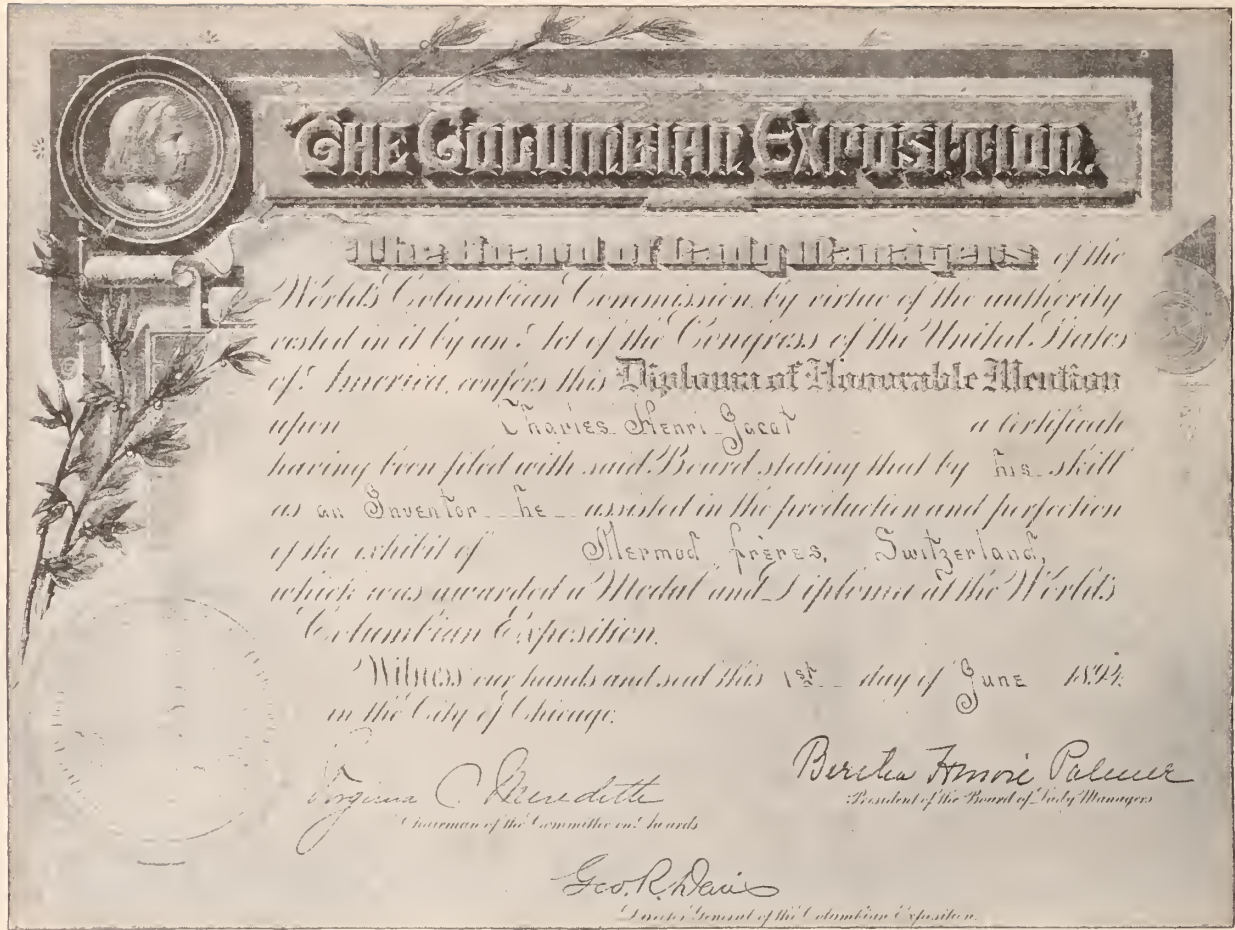 THE COLUMBIAN EXPOSITION.
The Board of Lady Managers of the
World's Columbian Commission, by virtue of the authority
vested in it by an Act of the Congress of the United States
of America, confers this Diploma of Honorable Mention
upon Charles Henri Jacot a certificate
having been filed with said Board stating that by his skill
as an Inventor he assisted in the production and perfection
of the exhibit of Mermod frères, Switzerland,
which was awarded a Medal and Diploma at the World's
Columbian Exposition.
Witness our hands and seal this 1st day of June 1894.
in the City of Chicago.
Virginia C. Meredith
Chairman of the Committee on Awards
Bertha Honoré Palmer
President of the Board of Lady Managers
Geo. R. Davis
Director General of the Columbian Exposition.